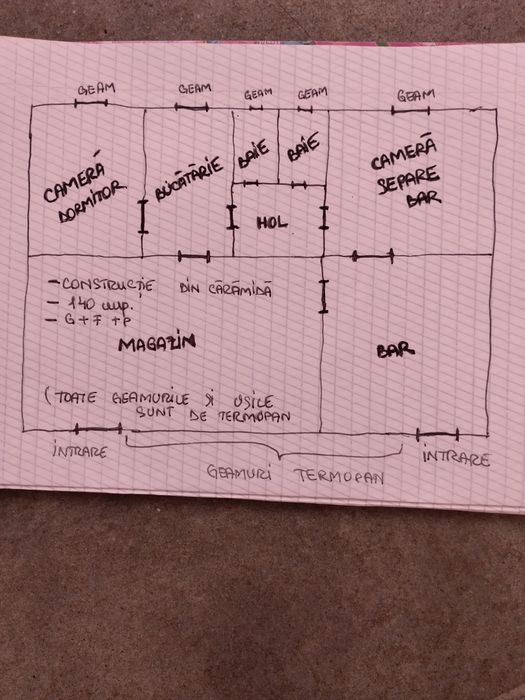 GEAM GEAM GEAM GEAM GEAM
CAMERĂ
DORMITOR
BUCĂTĂRIE
BAIE
BAIE
HOL
CAMERĂ
SEPARE
BAR
- CONSTRUCȚIE DIN CĂRĂMIDĂ
- 140 mp.
- G+F+P
MAGAZIN
BAR
(TOATE GEAMURILE ȘI UȘILE
SUNT DE TERMOPAN
ÎNTRARE
GEAMURI TERMOPAN
ÎNTRARE